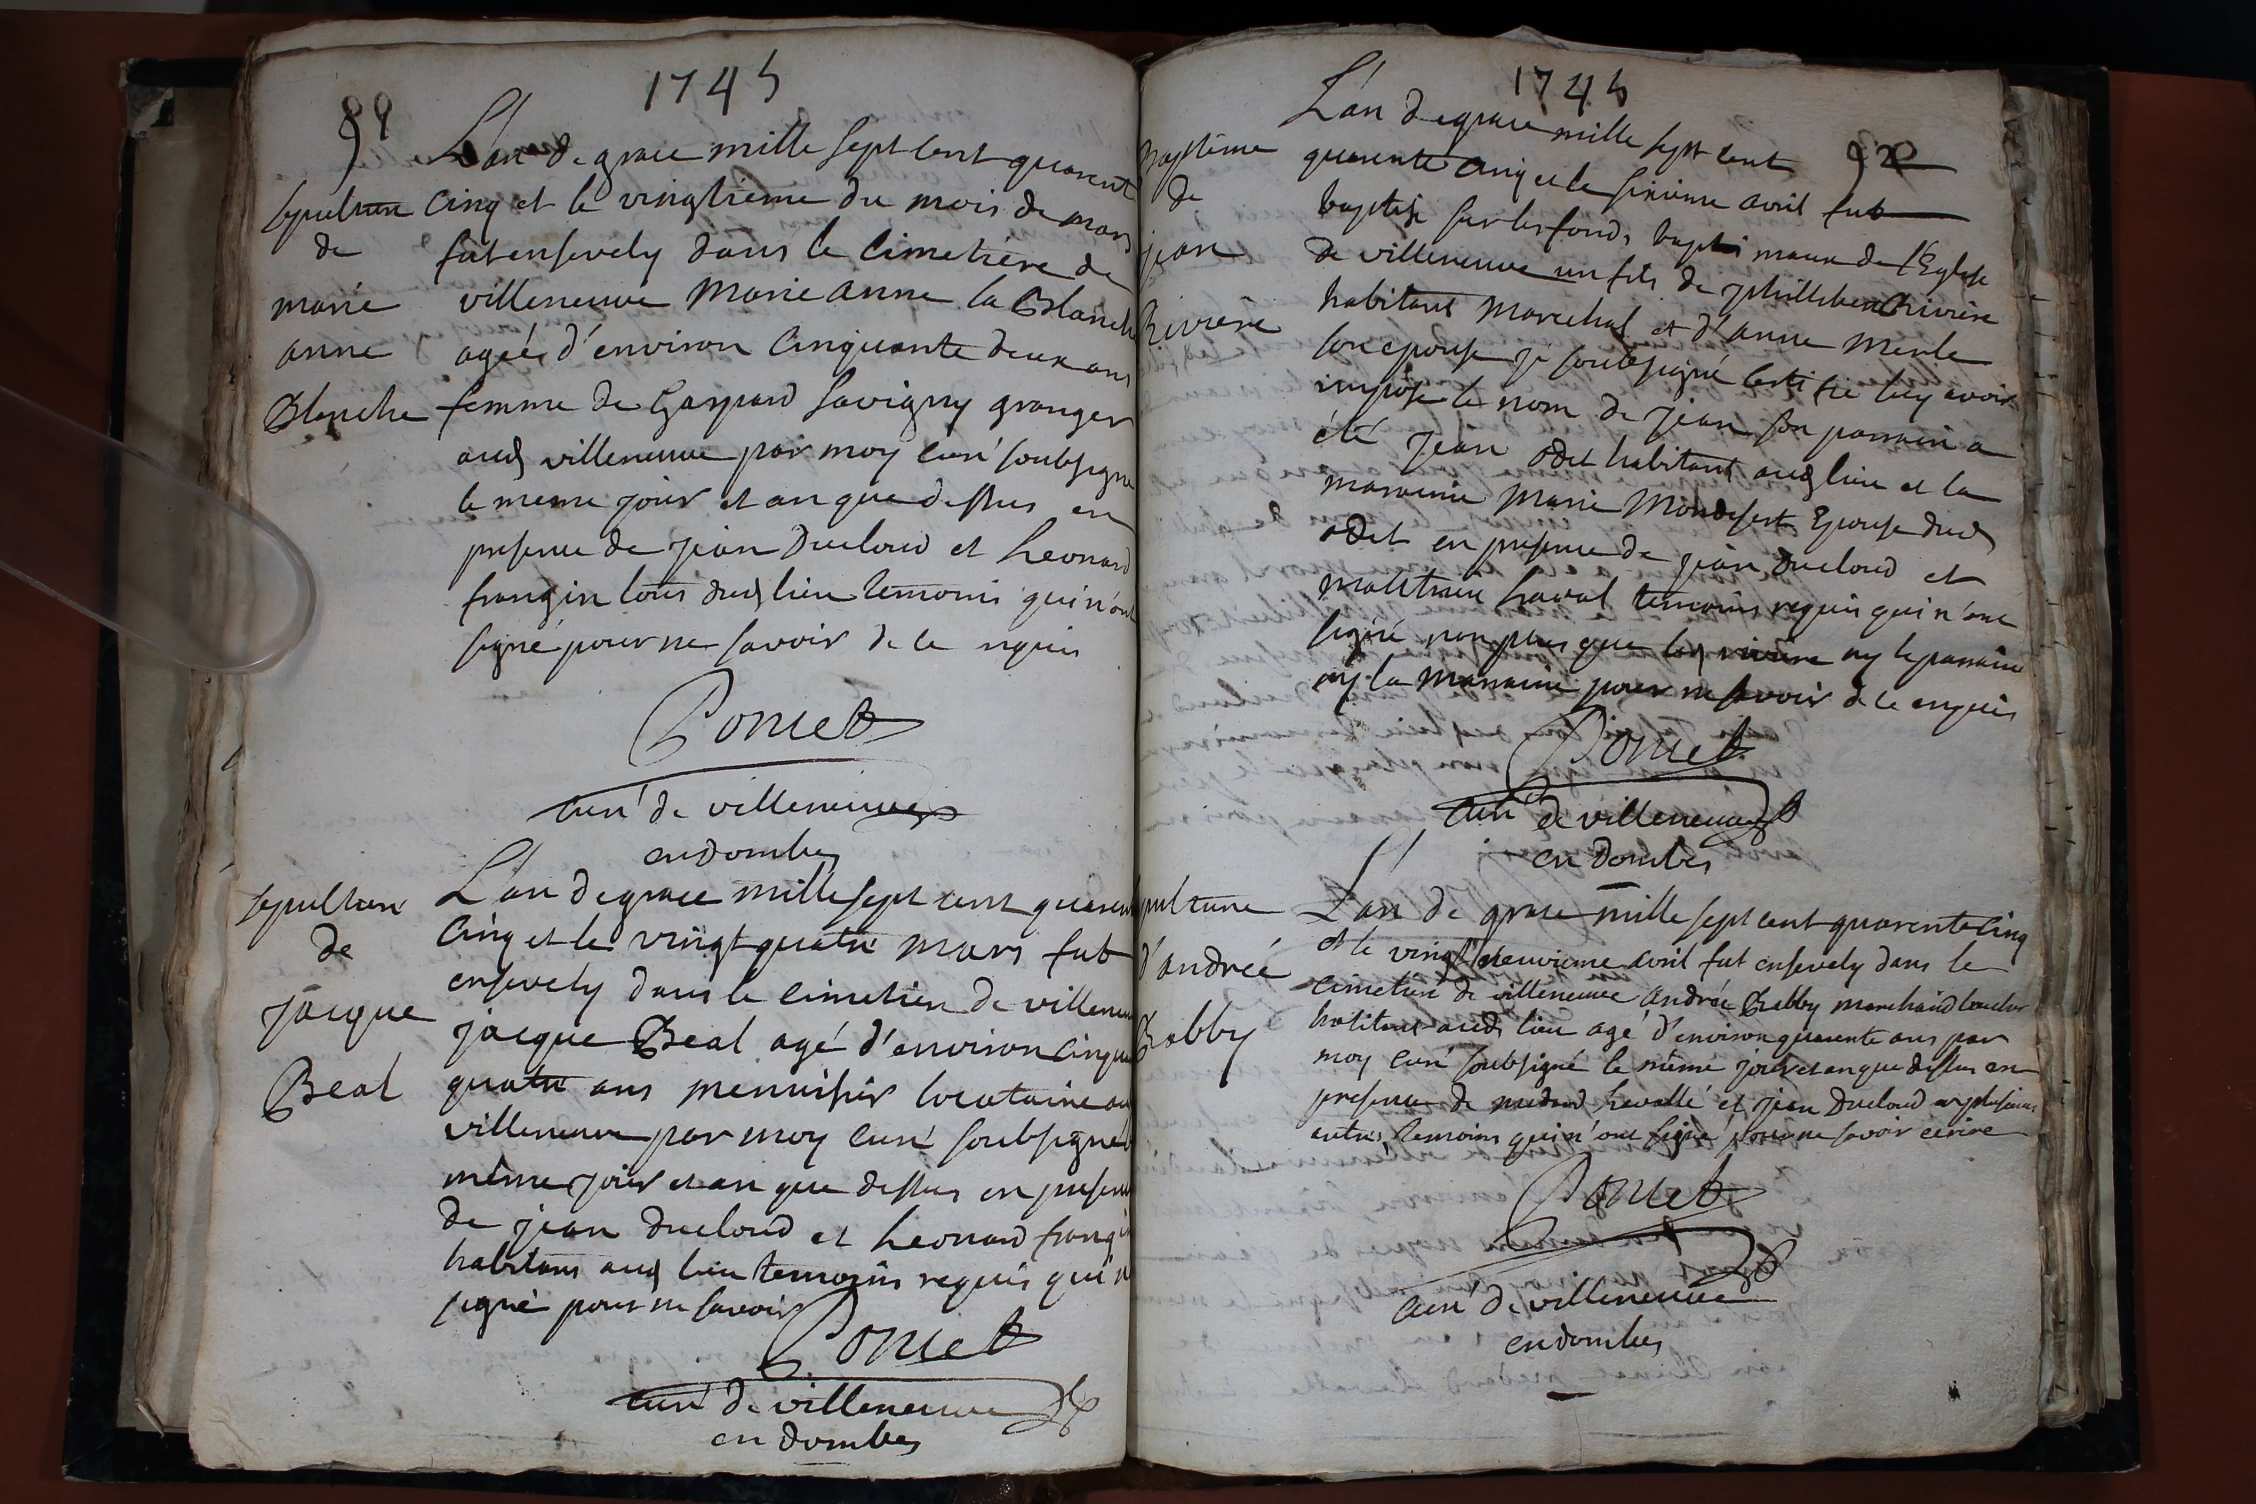 1745
sepulture
de
marie
anne
Blanche
L'an de grace mille sept cent quarente
cinq et le vingtrieme du mois de mars
fut ensevely dans le cimetiere de
villeneuve Marie anne la Blanche
ageés d'environ cinquante deux ans
femme de Gaspard Savigny granger
aud villeneuve par moy curé soubsigné
le meme jour et an que dessus en
presence de jean Ducloud et Leonard
frangin tous dud lieu temoins qui n'ont
signé pour ne savoir de ce requis
Poncet
curé de villeneuve
en dombes
sepulture
de
jacque
Beal
L'an de grace mille sept cent quarente
cinq et le vingt quatre mars fut
ensevely dans le cimetiere de villeneuve
jacque Beal agé d'environ cinquante
quatre ans menuisier locataire au
villeneuve par moy curé soubsigné
même jour et an que dessus en presence
de jean Ducloud et Leonard frangin
habitans aud lieu temoins requis qui n
signé pour ne savoir
Poncet
curé de villeneuve
en dombes
1745
Baptême
de
jean
Riviere
L'an de grace mille sept cent
quarente cinq et le sixieme avril fut
baptisé sur les fonds baptismaux de l'Eglise
de villeneuve un fils de philliber Riviere
habitant marechal et d'anne merle
son epouse je soubsigné certifie luy avoir
imposé le nom de jean son parrain a
été jean odet habitant aud lieu et la
marraine Marie Mondesert Epouse dud
odet en presence de jean Ducloud et
Laval temoins requis qui n'ont
signé non plus que led riviere ny le parrain
ny la marraine pour ne savoir de ce enquis
Poncet
curé de villeneuve
en Dombes
sepulture
d'andreé
Babby
L'an de grace mille sept cent quarente cinq
et le vingt neuvieme avril fut ensevely dans le
cimetiere de villeneuve andreé Babby marchand boucher
habitant aud lieu agé d'environ quarente ans par
moy curé soubsigné le même jour et an que dessus en
presence de medard Levallé et jean Ducloud et plusieurs
autres temoins qui n'ont signé pour ne savoir ecrire
Poncet
curé de villeneuve
en dombes